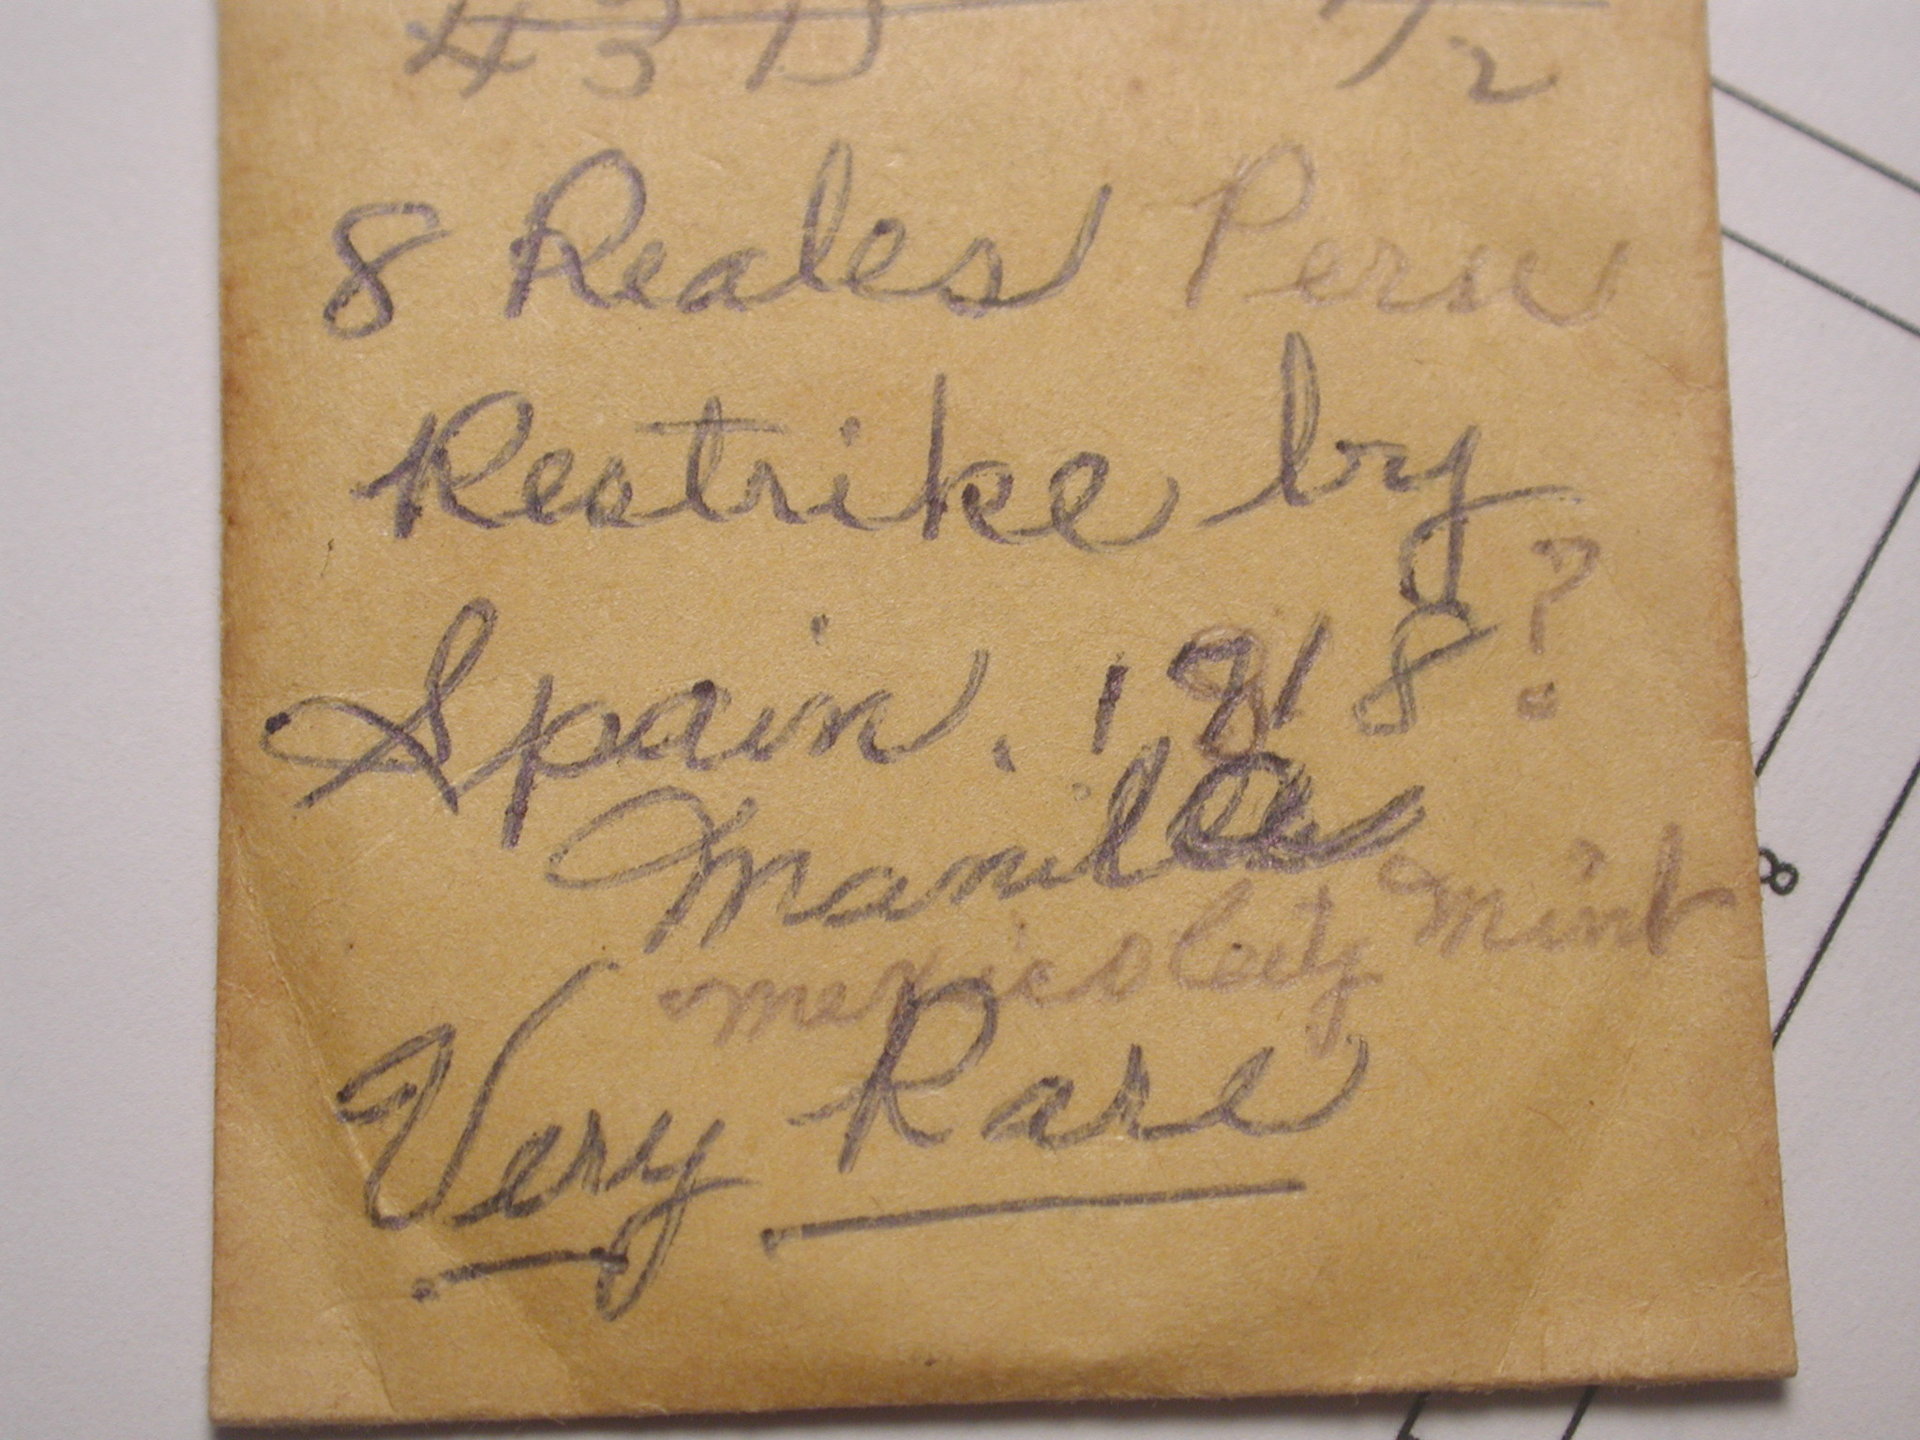 43D 1/2
8 Reales Peru
Restrike by
Spain. 1818?
Manila
Mexico City Mint
Very Rare
8